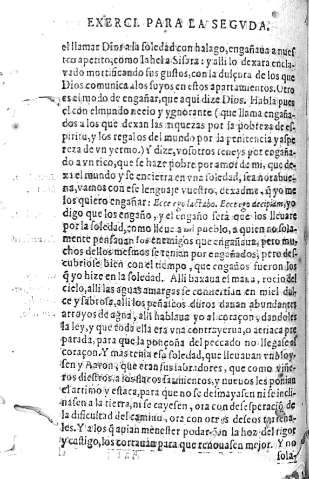 EXERCI. PARA LA SEGVDA.
el llamar Dios a la soledad con halago, engañaua a nues
tro apetito, como Iahel a Sisara: y alli lo dexara encla
uado mortificando sus gustos, con la dulçura de los que
Dios comunica a los suyos en estos apartamentos. Otro
es el modo de engañar, que aqui dize Dios. Habla pues
el con el mundo necio y ygnorante (que llama engaña-
dos a los que dexan las riquezas por la pobreza de es-
piritu, y los regalos del mundo por la penitencia y aspe
reza de vn yermo.) Y dize, vosotros teneys por engaña
do a vn rico, que se haze pobre por amor de mi, que de-
xa el mundo y se encierra en vna soledad, sea norabue-
na, vamos con esse lenguaje vuestro, dexadme, q̃ yo me
los quiero engañar: Ecce ego lactabo. Ecce ego decipiam, yo
digo que los engaño, y el engaño serà que los lleuare
por la soledad, como lleue a mi pueblo, a quien no sola-
mente pensauan los enemigos que engañaua, pero mu-
chos dellos mesmos se tenian por engañados, pero des-
cubriose bien con el tiempo, que engaños fueron los
q̃ yo hize en la soledad. Alli baxaua el mana, rocio del
cielo, alli las aguas amargas se conuertian en miel dul-
ce y sabrosa, alli los peñascos duros dauan abundantes
arroyos de agua, alli hablaua yo al coraçon, dandoles
la ley, y que toda ella era vna contrayerua, o atriaca pre
parada, para que la ponçoña del peccado no llegase al
coraçon. Y mas tenia esa soledad, que lleuauan vn Moy
sen y Aaron, que eran sus labradores, que como viñe-
ros diestros, a los flacos sarmientos, y nueuos les ponian
el arrimo y estaca, para que no se desmayasen ni se incli-
nasen a la tierra, ni se cayesen, ora con desesperaciõ de
la dificultad del camino, ora con otros deseos terrena-
les. Y a los q̃ auian menester podar con la hoz del rigor
y castigo, los cortauan para que renouasen mejor. Y no
sola-